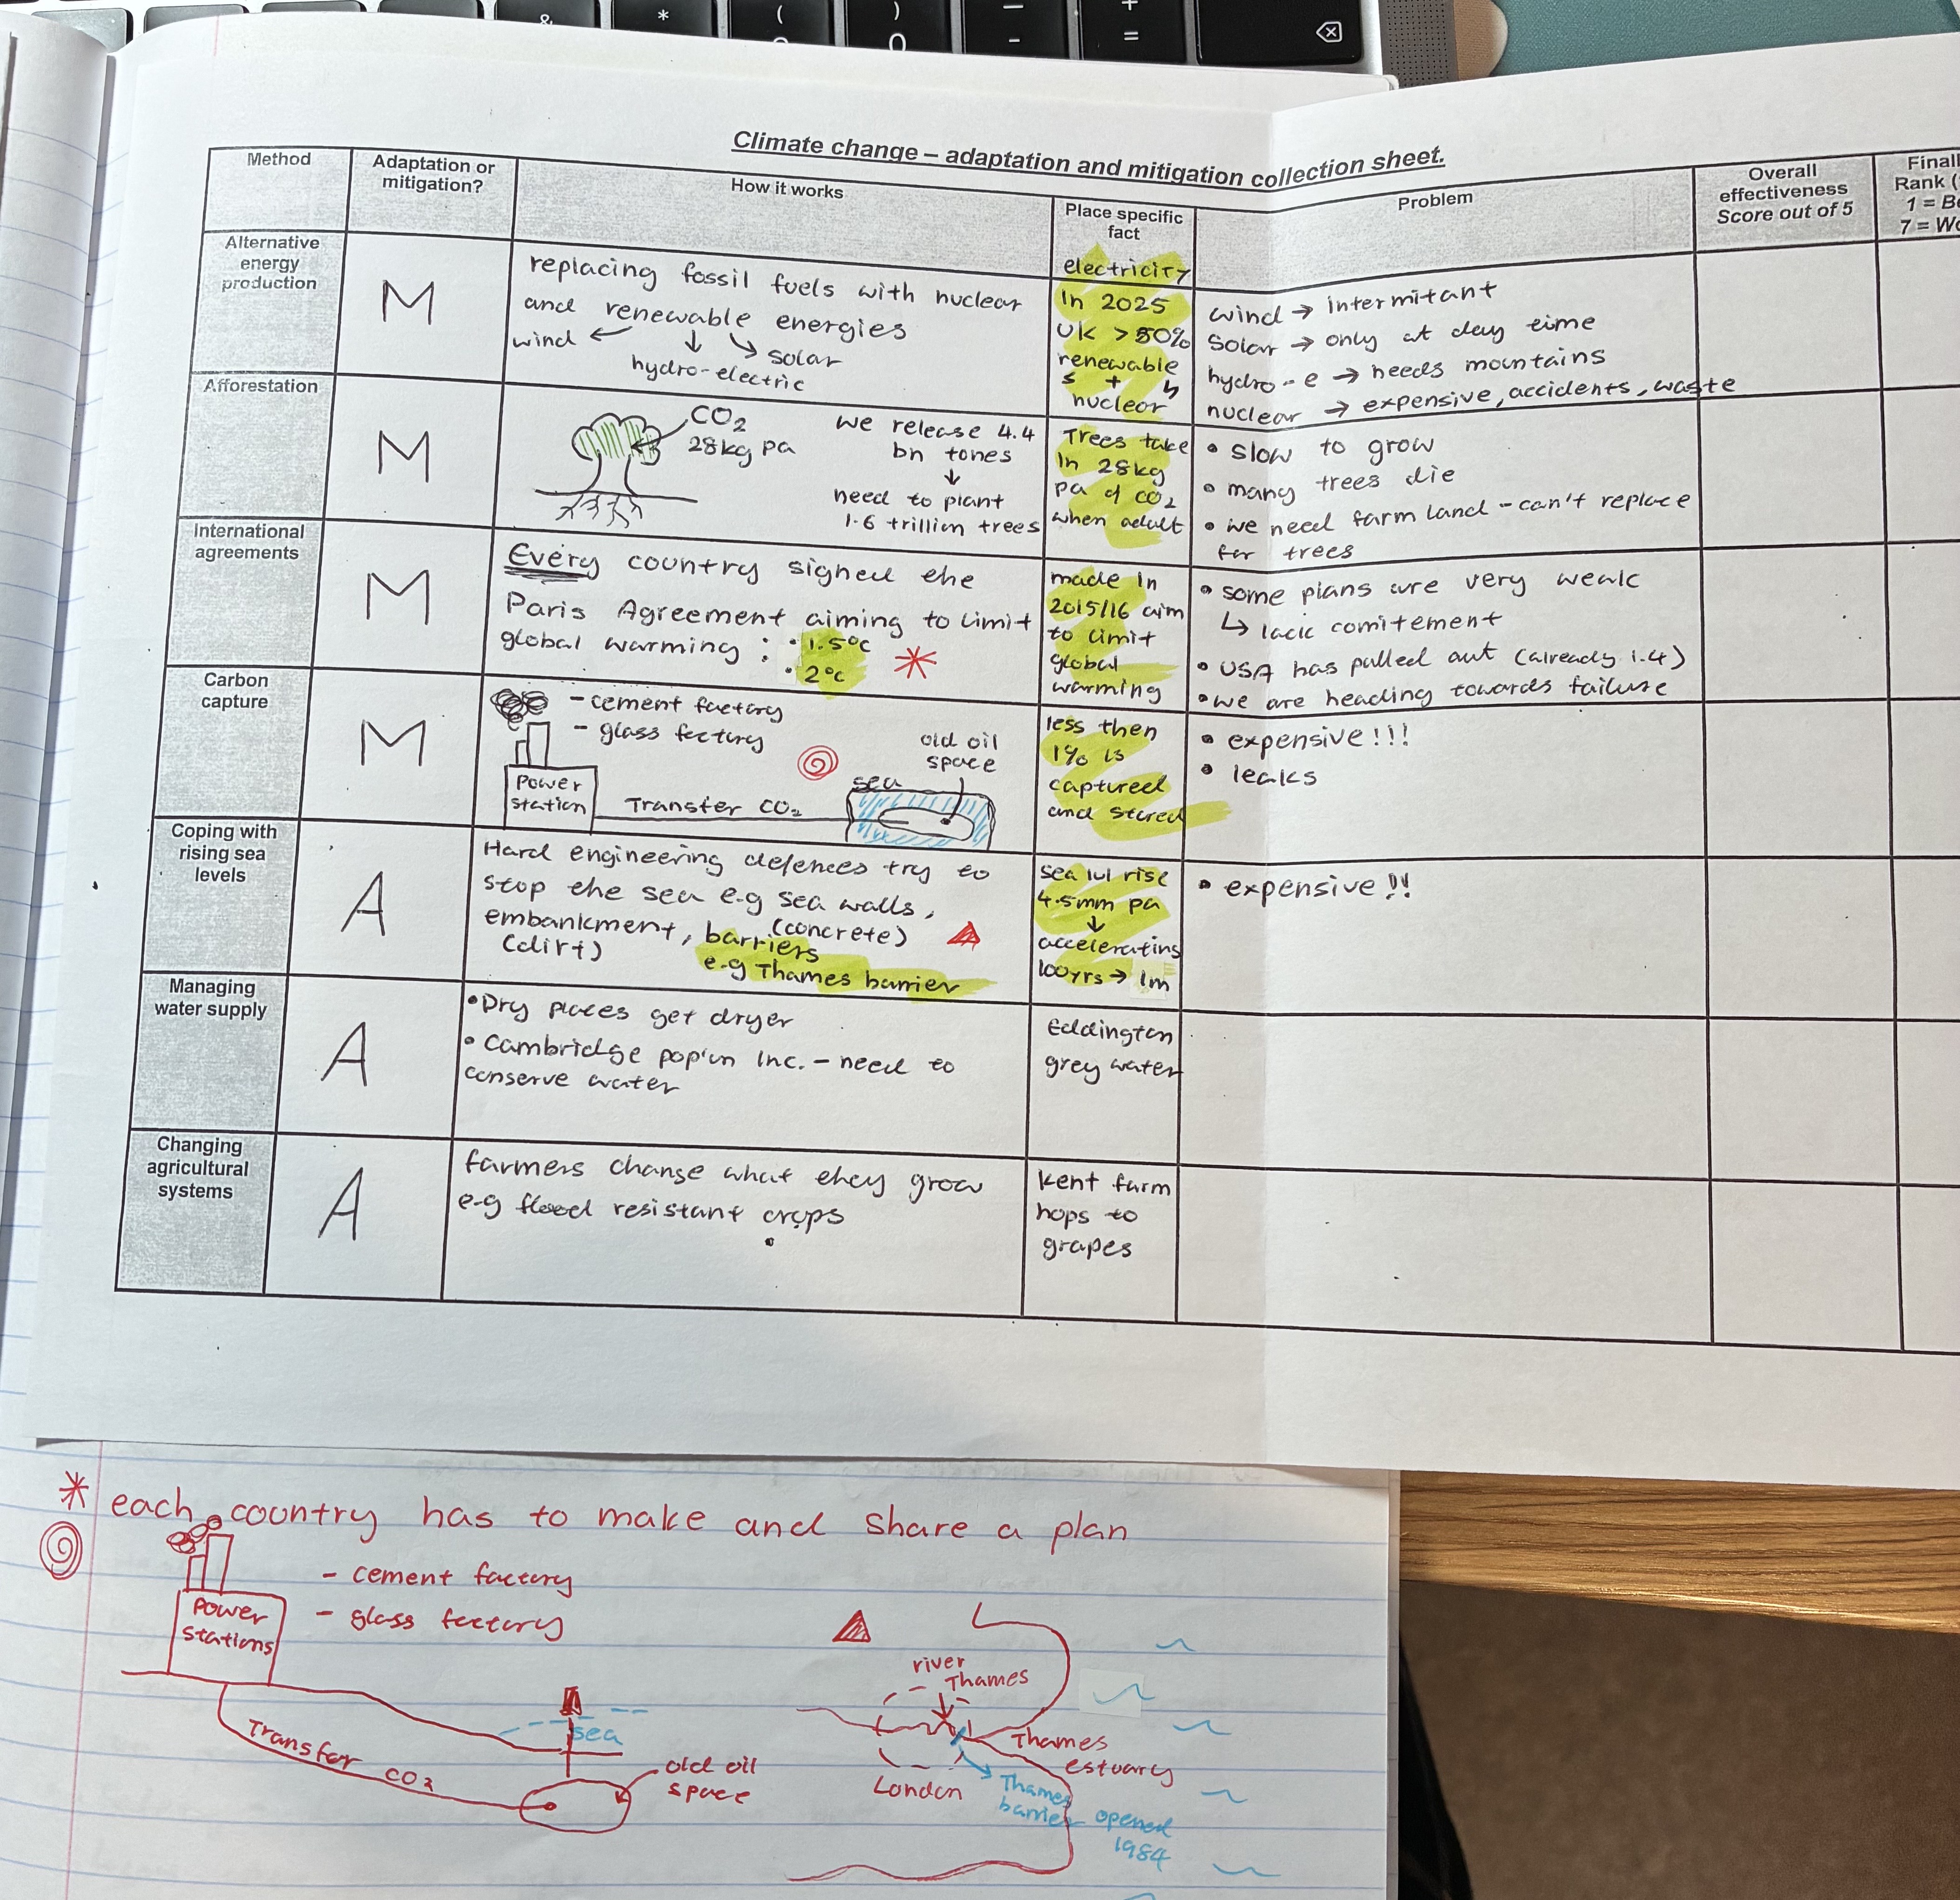 &
*
(
)
0
-
+
=
Climate change – adaptation and mitigation collection sheet.
Method
Adaptation or
mitigation?
How it works
Place specific
fact
Problem
Overall
effectiveness
Score out of 5
Rank
Alternative
energy
production
M
replacing fossil fuels with nuclear
and renewable energies
wind ← ↓ ↘ solar
hydro-electric
electricity
In 2025
UK > 50%
renewable
+
nuclear
wind → intermitant
Solar → only at day time
hydro-e → needs mountains
nuclear → expensive, accidents, waste
Afforestation
M
CO2
28kg pa
we release 4.4
bn tones
↓
need to plant
1.6 trillion trees
Trees take
in 28kg
pa of CO2
when adult
• slow to grow
• many trees die
• we need farm land - can't replace
for trees
International
agreements
M
Every country signed the
Paris Agreement aiming to limit
global warming : • 1.5°c
• 2°c
made in
2015/16 aim
to limit
global
warming
• some plans are very weak
↳ lack comitement
• USA has pulled out (already 1.4)
• we are heading towards failure
Carbon
capture
M
- cement factory
- glass factory
Power
station
Transfer CO2
sea
old oil
space
less then
1% is
captured
and stored
• expensive!!!
• leaks
Coping with
rising sea
levels
A
Hard engineering defences try to
stop the sea e.g sea walls,
(concrete)
embankment, barriers
(dirt)
e.g Thames barrier
sea lvl rise
4.5mm pa
↓
accelerating
100yrs → 1m
• expensive!!
Managing
water supply
A
• Dry places get dryer
• Cambridge pop'un inc. - need to
conserve water
Eddington
grey water
Changing
agricultural
systems
A
farmers change what they grow
e.g flood resistant crops
Kent farm
hops to
grapes
* each country has to make and share a plan
- cement factory
- glass factory
Power
stations
Transfer CO2
sea
old oil
space
river
Thames
Thames
estuary
London
Thames
barrier opened
1984